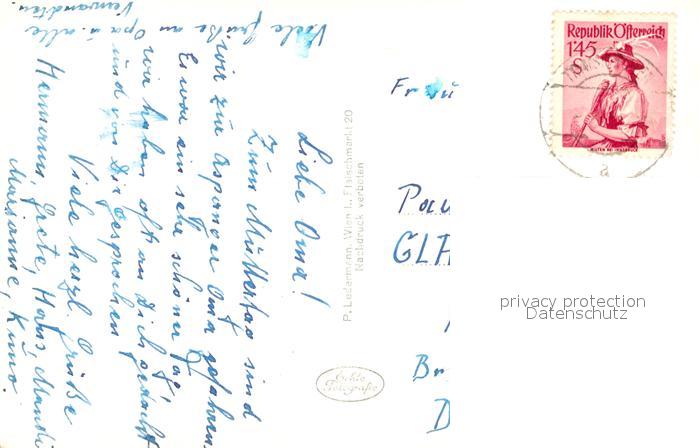 Liebe Oma!
Zum Muttertag sind
wir zur Aspanger Oma gefahren
Es war ein sehr schöner Tag!
wir haben oft an Dich gedacht
und von Dir gesprochen
Viele herzl. Grüße
Hermann, Grete, Hans,
Marianne, Kuno.
Viele Grüße an Opa u. alle
Verwandten.
P. Ledermann, Wien I., Fleischmarkt 20
Nachdruck verboten
Echte
Fotografie
Republik Österreich
1'45
S
WILTEN BEI INNSBRUCK
Frau
Pau
GLA
Br
D
privacy protection
Datenschutz